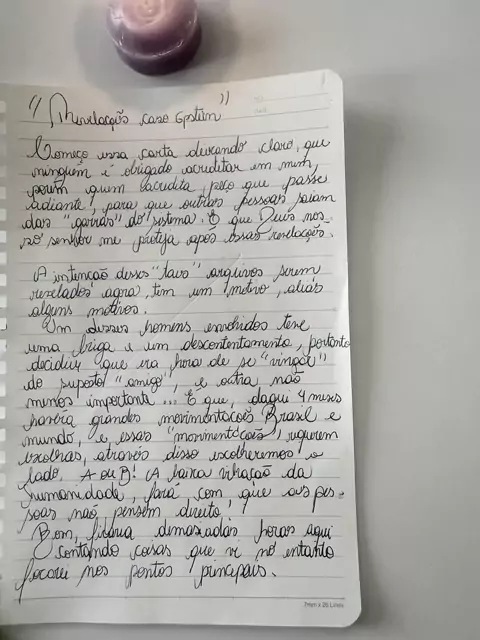 "Revelações caso Epstein"
Começo essa carta deixando claro, que
ninguem é obrigado acreditar em mim,
porém quem acredita, peço que passe
adiante, para que outras pessoas saiam
das "garras" do sistema. E que Deus nos-
so senhor me proteja após essas revelações.
A intenção desses "tais" arquivos serem
revelados agora, tem um motivo, aliás
alguns motivos.
Um desses homens envolvidos teve
uma briga e um descontentamento, portanto
decidiu que era hora de se "vingar"
do suposto "amigo", e outra não
menos importante... É que, daqui 4 meses
haverá grandes movimentacoes Brasil e
mundo, e essas "movimentações" requerem
escolhas, através disso escolheremos o
lado. A ou B! A baixa vibração da
humanidade, fará com que as pes-
soas não pensem direito!
Bom, ficaria demasiadas horas aqui
contando coisas que vi no entanto
focarei nos pontos principais.
7mm x 25 Lines